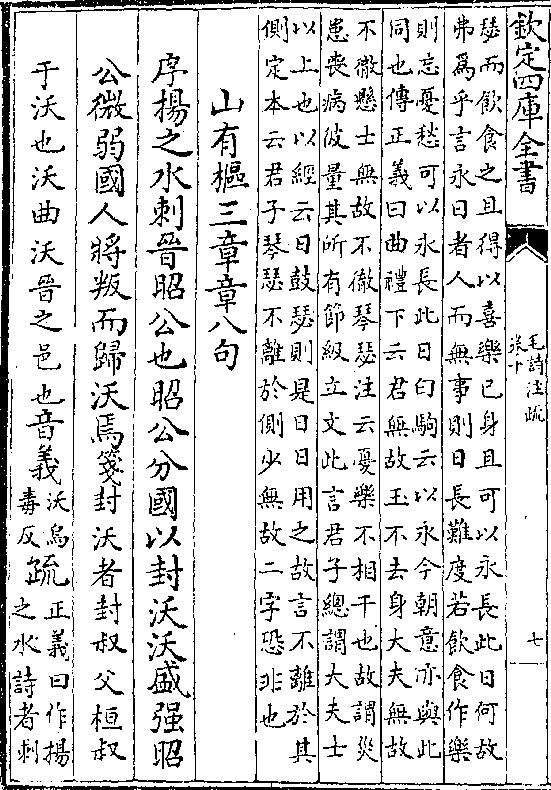 欽定四庫全書
毛詩注疏
卷十
七
瑟而飲食之且得以喜樂已身且可以永長此日何故
弗為乎言永日者人而無事則日長難度若飲食作樂
則忘憂愁可以永長此日白駒云以永今朝意亦與此
同也傳正義曰曲禮下云君無故玉不去身大夫無故
不徹懸士無故不徹琴瑟注云憂樂不相干也故謂災
患喪病彼量其所有節級立文此言君子總謂大夫士
以上也以經云日鼓瑟則是日日用之故言不離於其
側定本云君子琴瑟不離於側少無故二字恐非也
山有樞三章章八句
序揚之水刺晉昭公也昭公分國以封沃沃盛强昭
公微弱國人將叛而歸沃焉箋封沃者封叔父桓叔
于沃也沃曲沃晉之邑也音義沃烏毒反疏正義曰作揚之水詩者刺